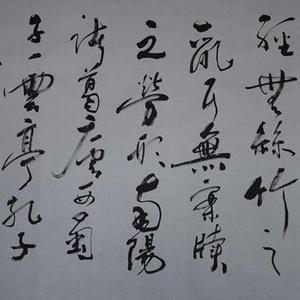 經無絲竹之
亂耳無案牘
之勞形南陽
諸葛廬西蜀
子雲亭孔子